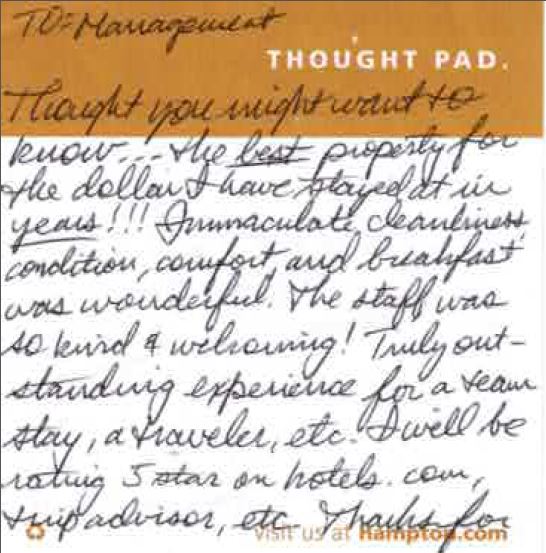 TO: Management
THOUGHT PAD.
Thought you might want to
know... the best property for
the dollar I have stayed at in
years!!! Immaculate, cleanliness,
condition, comfort and breakfast
was wonderful. The staff was
so kind & welcoming! Truly out-
standing experience for a team
stay, a traveler, etc. I will be
rating 5 star on hotels.com,
tripadvisor, etc. Thanks for
visit us at hampton.com